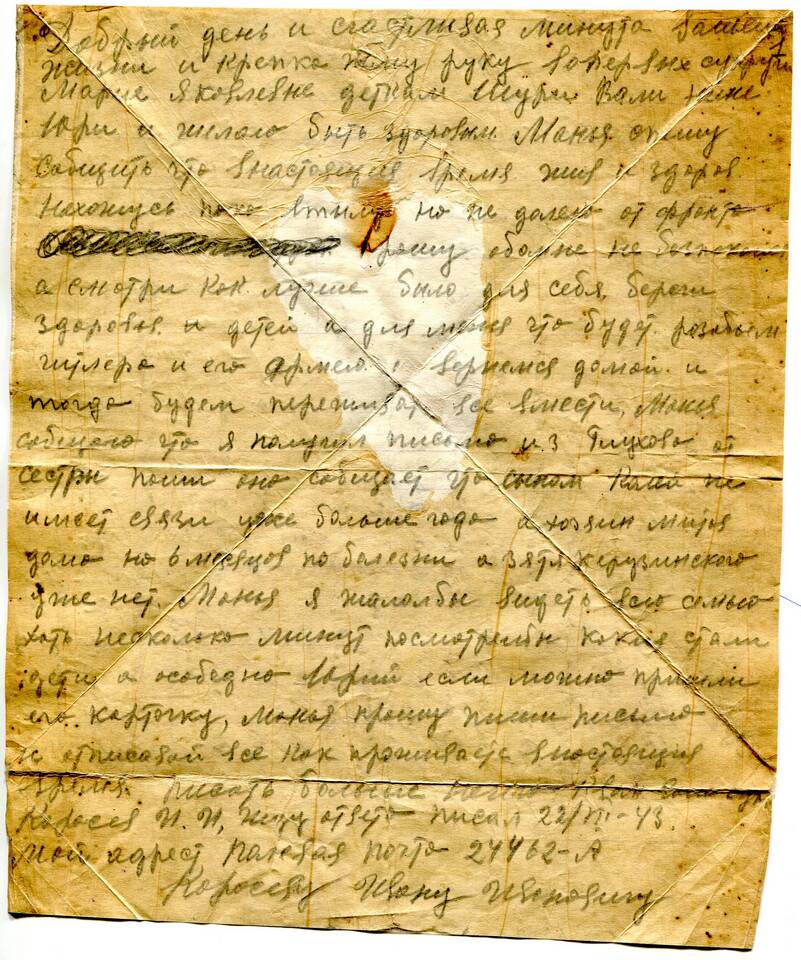 Добрый день и счастливая минута вашей
жизни и крепко жму руку вопервых супруги
Марие Яковлевне деткам Шури Вали Нине
Юри и желаю быть здоровым Маня опишу
Собщить что внастоящия время жив и здоров
Нахожусь пока втылу но не далеко от фронта
прошу обомне не беспокой
а смотри как лучше было для себя, береги
здоровья и детей а для меня что будет. розобьем
гитлера и его Армею и вернемся домой. и
тогда будем переживат все вмести, Маня
собщаю что я получил письмо из Глухова от
сестры паши она собщает что сыном Колей не
имеет связи уже больше года а хозяин Митя
дома но 6 месяцов по болезни а зятя жерузинского
уже нет. Маня я жалалбы видеть всю семью
хоть несколько минут посмотрелбы какия стали
дети а особедно Юрий если можно пришли
его карточку, маня прошу пиши письмо
и отписовай все как проживаете внастоящия
время. писать больше нечего
Коросев И. И, жду ответа писал 22/VII-43.
Мой адрест Палевая почта 24462-А
Коросеву Ивану Ивановичу